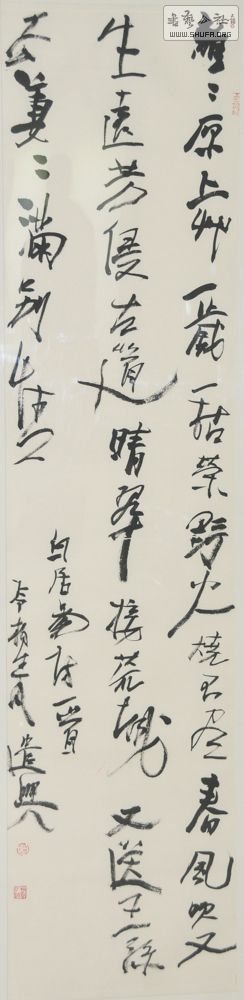 书艺公社
WWW.SHUFA.ORG
離〻原上艸一歲一枯榮野火燒不盡春風吹又
生遠芳侵古道晴翠接荒城又送王孫
去萋〻滿別情
白居易詩一首